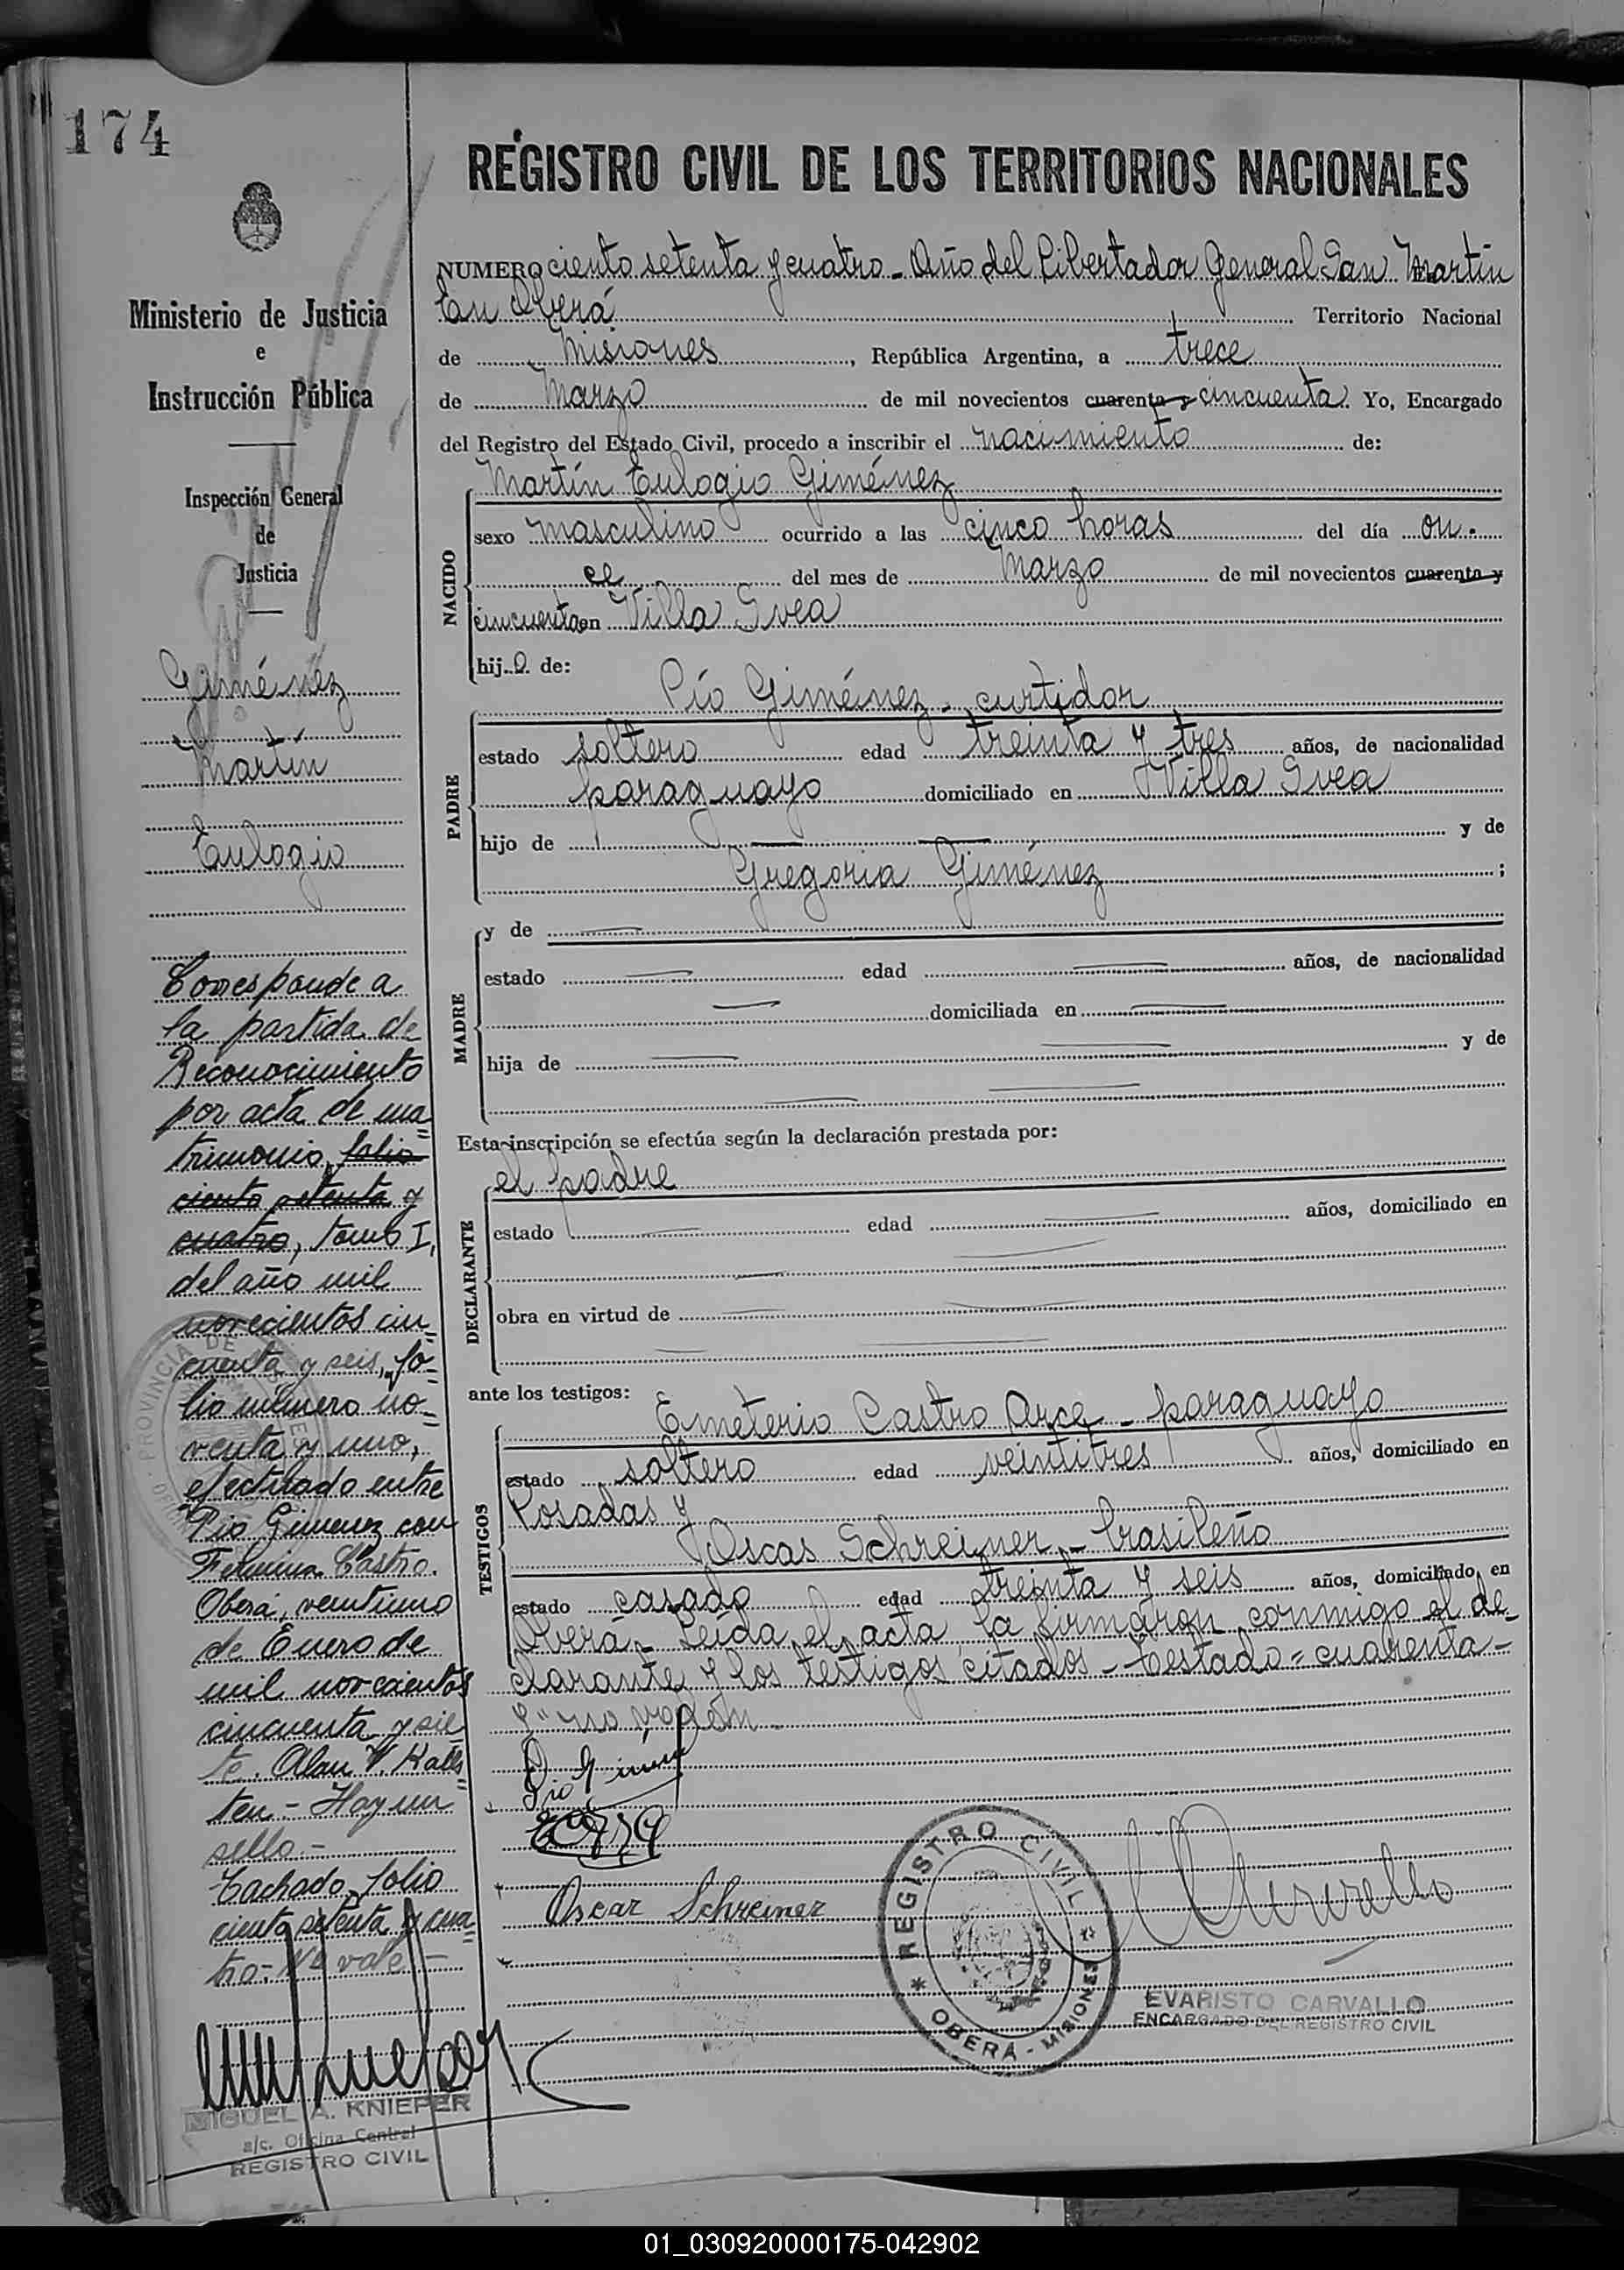 174
Ministerio de Justicia
e
Instrucción Pública
Inspección General
de
Justicia
Giménez
Martín
Eulogio
Corresponde a
la partida de
Reconocimiento
por acta de ma=
trimonio, folio
ciento setenta y
cuatro, tomo I,
del año mil
novecientos cin=
cuenta y seis, fo=
lio número no=
venta y uno,
efectuado entre
Pio Gimenez con
Felmina Castro.
Oberá, veintiuno
de Enero de
mil novecientos
cincuenta y sie
te. Alan V. Kals
ten - Hay un
sello.-
Tachado, folio
ciento setenta y cua=
tro-No vale.-
MIGUEL A. KNIEPER
a/c. Oficina Central
REGISTRO CIVIL
REGISTRO CIVIL DE LOS TERRITORIOS NACIONALES
NUMERO ciento setenta y cuatro - Año del Libertador General San Martín
En Oberá Territorio Nacional
de Misiones, República Argentina, a trece
de Marzo de mil novecientos cuarenta y cincuenta. Yo, Encargado
del Registro del Estado Civil, procedo a inscribir el nacimiento de:
NACIDO
Martín Eulogio Giménez
sexo masculino ocurrido a las cinco horas del día on-
ce del mes de Marzo de mil novecientos cuarenta y
cincuenta en Villa Svea
hijo de:
PADRE
Pío Giménez - curtidor
estado soltero edad treinta y tres años, de nacionalidad
paraguayo domiciliado en Villa Svea
hijo de y de
Gregoria Giménez ;
MADRE
y de
estado edad años, de nacionalidad
domiciliada en
hija de y de
Esta inscripción se efectúa según la declaración prestada por:
DECLARANTE
el padre
estado edad años, domiciliado en
obra en virtud de
ante los testigos:
TESTIGOS
Emeterio Castro Arce - paraguayo
estado soltero edad veintitres años, domiciliado en
Posadas y
Oscar Schreiner - brasileño
estado casado edad treinta y seis años, domiciliado en
Oberá - Leída el acta la firmaron conmigo el de-
clarante y los testigos citados - Testado = cuarenta -
y" no valen -
Pio Giménez
Oscar Schreiner
REGISTRO CIVIL
OBERÁ - MISIONES
EVARISTO CARVALLO
ENCARGADO DEL REGISTRO CIVIL
01_030920000175-042902